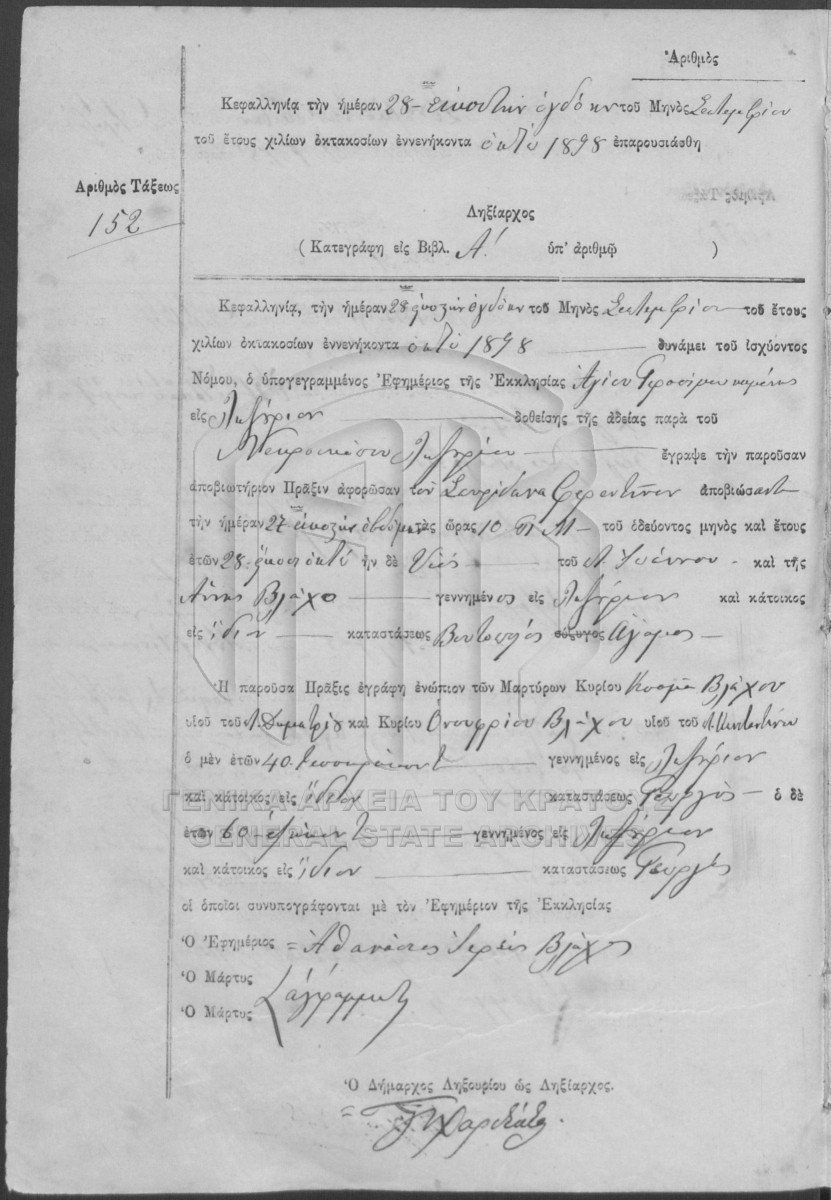 Ἀριθμὸς
Κεφαλληνίᾳ τὴν ἡμέραν 28 – εἰκοστὴν ὀγδόην τοῦ Μηνὸς Σεπτεμβρίου
τοῦ ἔτους χιλίων ὀκτακοσίων ἐννενήκοντα ὀκτὼ 1898 ἐπαρουσιάσθη
Ἀριθμὸς Τάξεως
152
Ληξίαρχος
( Κατεγράφη εἰς Βιβλ. Α! ὑπ' ἀριθμῷ )
Κεφαλληνίᾳ, τὴν ἡμέραν 28 εἰκοστὴν ὀγδόην τοῦ Μηνὸς Σεπτεμβρίου τοῦ ἔτους
χιλίων ὀκτακοσίων ἐννενήκοντα ὀκτὼ 1898 δυνάμει τοῦ ἰσχύοντος
Νόμου, ὁ ὑπογεγραμμένος Ἐφημέριος τῆς Ἐκκλησίας Ἁγίου Γερασίμου
εἰς Ληξούριον δοθείσης τῆς ἀδείας παρὰ τοῦ
Ληξουρίου ἔγραψε τὴν παροῦσαν
ἀποβιωτήριον Πρᾶξιν ἀφορῶσαν τὸν Σπυρίδωνα Φεραντῖνον ἀποβιώσαντ
τὴν ἡμέραν 27 εἰκοστὴν ἑβδόμην τὰς ὥρας 10 Π. Μ – τοῦ ὁδεύοντος μηνὸς καὶ ἔτους
ἐτῶν 28 – εἴκοσι ὀκτὼ ἦν δὲ Υἱὸς τοῦ Ἰωάννου – καὶ τῆς
Ἄννης Βλάχο γεννημένος εἰς Ληξούριον καὶ κάτοικος
εἰς ἴδιον καταστάσεως σύζυγος Ἄγαμος –
Ἡ παροῦσα Πρᾶξις ἐγράφη ἐνώπιον τῶν Μαρτύρων Κυρίου Κοσμᾶ Βλάχου
υἱοῦ τοῦ Δημητρίου καὶ Κυρίου Ὀνουφρίου Βλάχου υἱοῦ τοῦ
ὁ μὲν ἐτῶν 40 – τεσσαράκοντ γεννημένος εἰς Ληξούριον
καὶ κάτοικος εἰς ἴδιον καταστάσεως Γεωργὸς – ὁ δὲ
ἐτῶν 60 – ἑξήκοντ γεννημένος εἰς Ληξούριον
καὶ κάτοικος εἰς ἴδιον καταστάσεως Γεωργὸς
οἱ ὁποῖοι συνυπογράφονται μὲ τὸν Ἐφημέριον τῆς Ἐκκλησίας
Ὁ Ἐφημέριος = Ἀθανάσιος Ἱερεὺς Βλάχος
Ὁ Μάρτυς
Ὁ Μάρτυς ἀγράμματ
Ὁ Δήμαρχος Ληξουρίου ὡς Ληξίαρχος.
ΓΕΝΙΚΑ ΑΡΧΕΙΑ ΤΟΥ ΚΡΑΤΟΥΣ
GENERAL STATE ARCHIVES